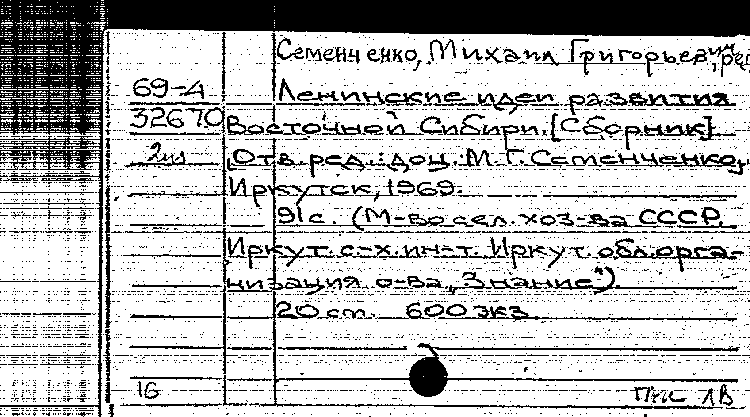 Семенченко, Михаил Григорьевич, ред.
69-4
Ленинские идеи развития
32670
Восточной Сибири. [Сборник].
2 из
[Отв. ред.: доц. М.Г. Семенченко].
Иркутск, 1969.
91 с. (М-во сел. хоз-ва СССР.
Иркут. с-х. ин-т. Иркут. обл. орга-
низация о-ва „Знание").
20 см. 600 экз.
16
ЛВ